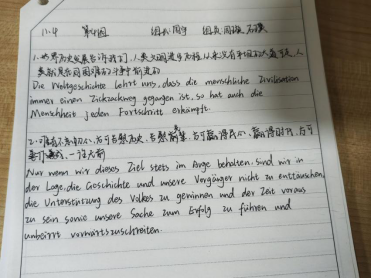 11.4 第4周
1. 世界历史发展告诉我们,人类文明进步历程从来没有平坦的大道可走,人
类就是在同困难的斗争中前进的
Die Weltgeschichte lehrt uns, dass die menschliche Zivilisation
immer einen Zickzackweg gegangen ist, so hat auch die
Menschheit jeden Fortschritt erkämpft.
2. 唯有不忘初心,方可告慰历史、告慰先辈,方可赢得民心、赢得时代,方可
一往无前
Nur wenn wir dieses Ziel stets im Auge behalten, sind wir in
der Lage, die Geschichte und unsere Vorgänger nicht zu enttäuschen,
die Unterstützung des Volkes zu gewinnen und der Zeit voraus
zu sein sowie unsere Sache zum Erfolg zu führen und
unbeirrt vorwärtszuschreiten.